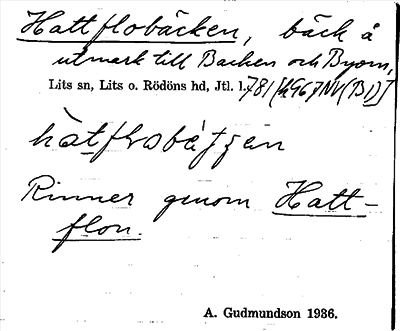 Hattflobäcken, bäck å
utmark till Backen och Byom,
Lits sn, Lits o. Rödöns hd, Jtl. l.
Rinner genom Hatt-
flon.
A. Gudmundson 1936.